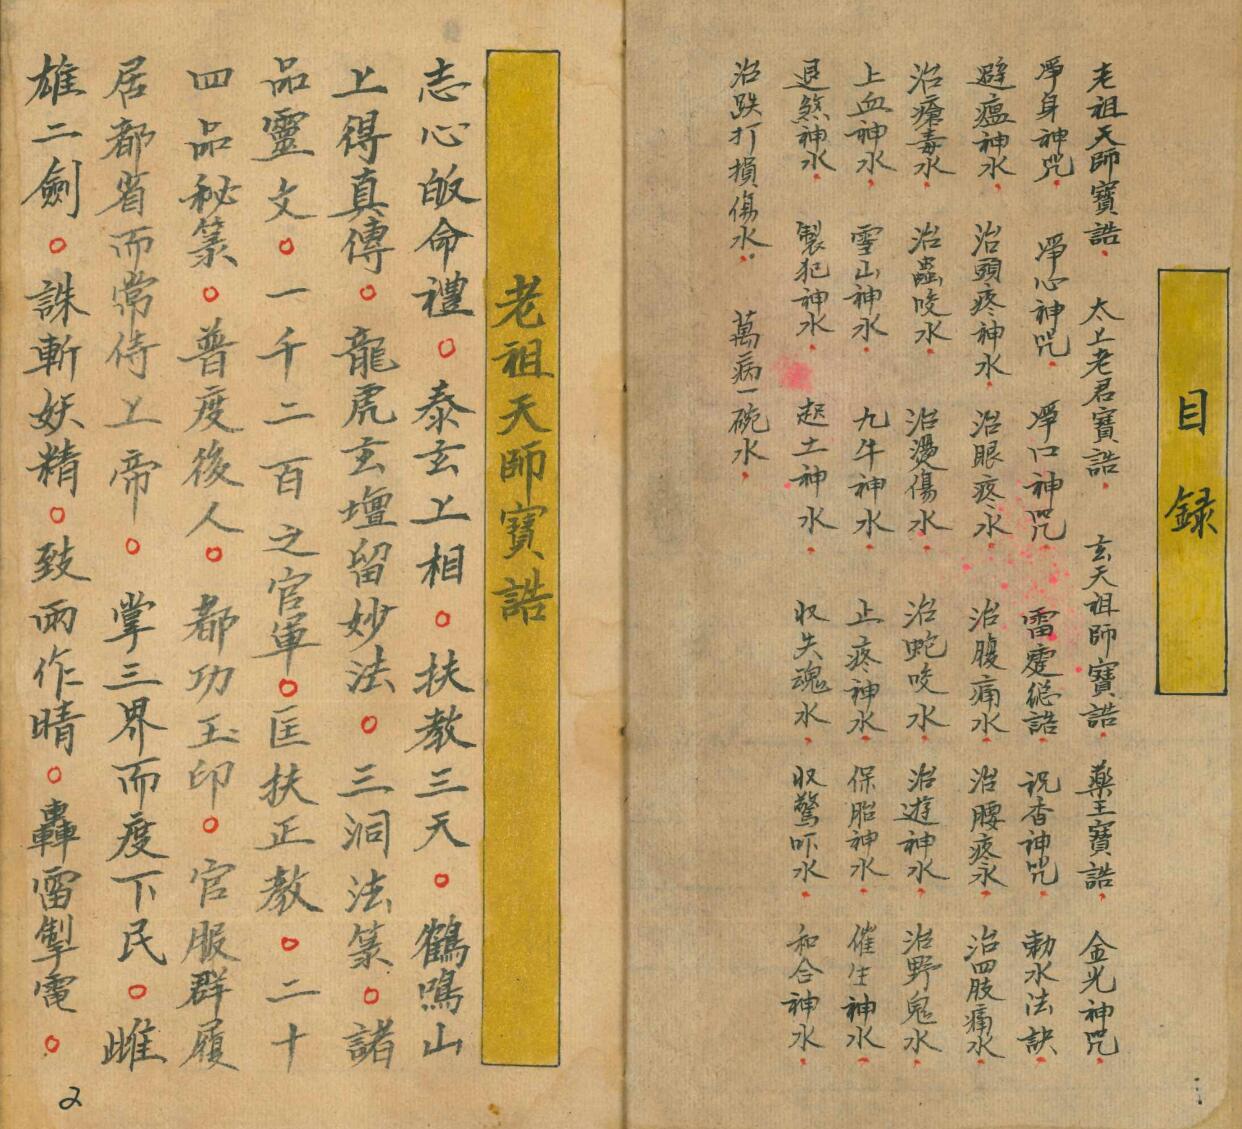 目録
老祖天師寶誥 太上老君寶誥 玄天祖師寶誥 藥王寶誥 金光神咒
淨身神咒 淨心神咒 淨口神咒 雷霆總誥 祝香神咒 勅水法訣
避瘟神水 治頭疼神水 治眼疼水 治腹痛水 治腰疼水 治四肢痛水
治瘡毒水 治蟲咬水 治燙傷水 治蛇咬水 治遊神水 治野鬼水
止血神水 雪山神水 九牛神水 止疼神水 保胎神水 催生神水
退煞神水 製犯神水 起土神水 收失魂水 收驚吓水 和合神水
治跌打損傷水 萬病一碗水
老祖天師寶誥
志心皈命禮。泰玄上相。扶教三天。鶴鳴山
上得真傳。龍虎玄壇留妙法。三洞法篆。諸
品靈文。一千二百之官軍。匡扶正教。二十
四品秘篆。普度後人。都功玉印。官服群履
居都省而常侍上帝。掌三界而度下民。雌
雄二劍。誅斬妖精。致雨作晴。轟雷掣電。
2